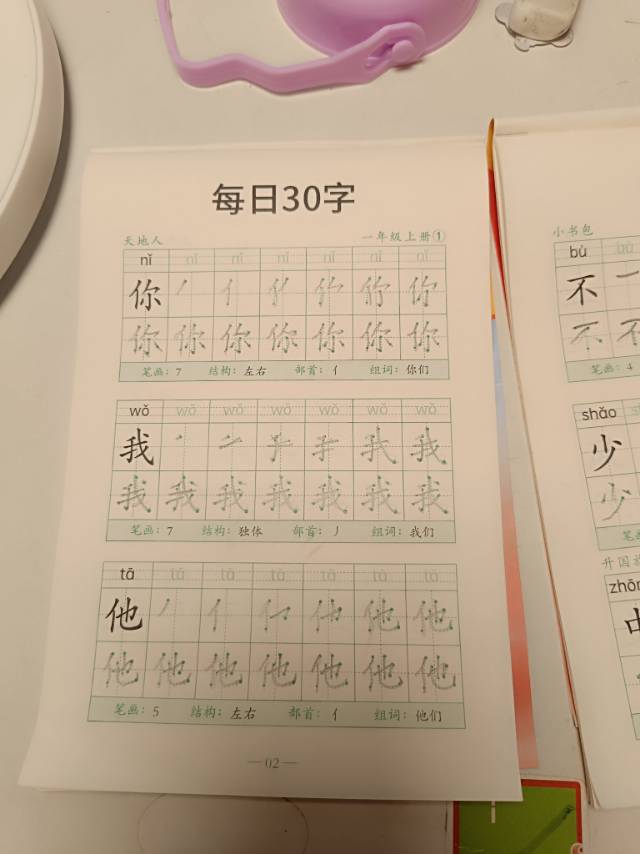 每日30字
天地人 一年级上册①
nǐ nǐ nǐ nǐ nǐ nǐ nǐ
你
你 你 你 你 你 你 你
笔画：7 结构：左右 部首：亻 组词：你们
wǒ wǒ wǒ wǒ wǒ wǒ wǒ
我 我
我 我 我 我 我 我 我
笔画：7 结构：独体 部首：丿 组词：我们
tā tā tā tā tā tā tā
他 他 他
他 他 他 他 他 他 他
笔画：5 结构：左右 部首：亻 组词：他们
— 02 —
小书包
bù bù
不
不 不
笔画：4
shǎo
少
少
升国